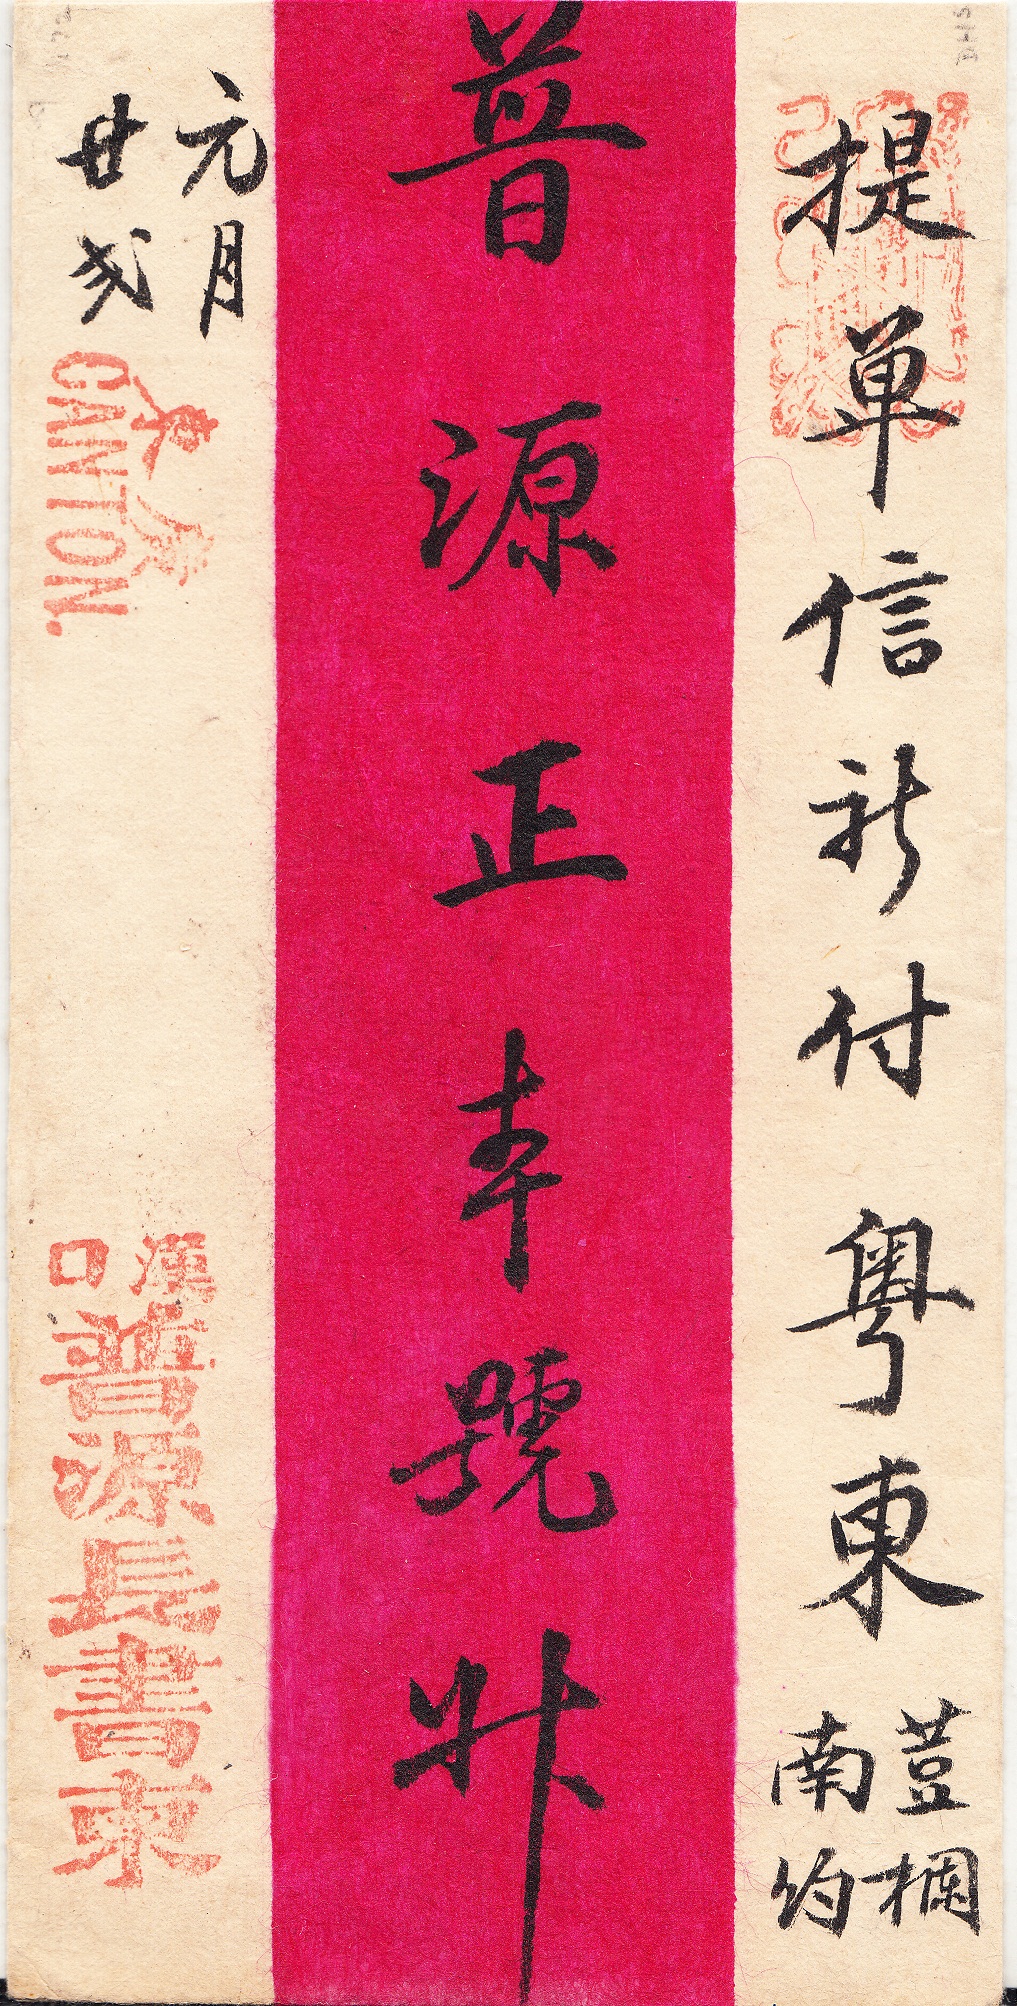 提单信祈付粤東
荳欄
南约
普源正夲號升
元月
廿弍
廣東
CANTON.
漢口
普源長書柬